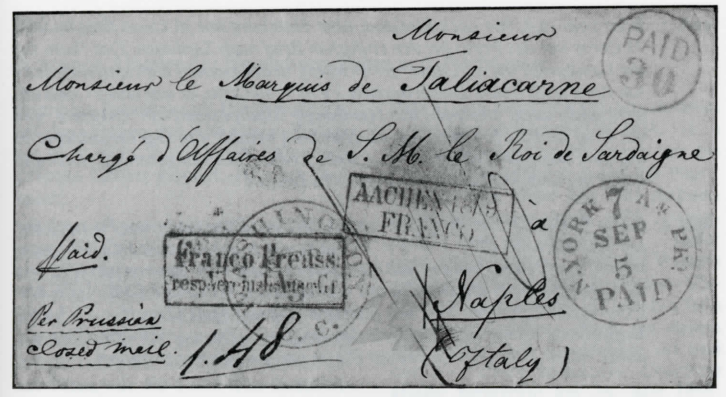 Monsieur
PAID
30
Monsieur le Marquis de Taliacarne
Chargé d'Affaires de S. M. le Roi de Sardaigne
AACHEN
FRANCO
à
N. YORK Am PKT
7
SEP
5
PAID
WASHINGTON
D. C.
paid.
Franco Preuss.
resp
Naples
Per Prussian
closed mail.
1.48
(Italy)